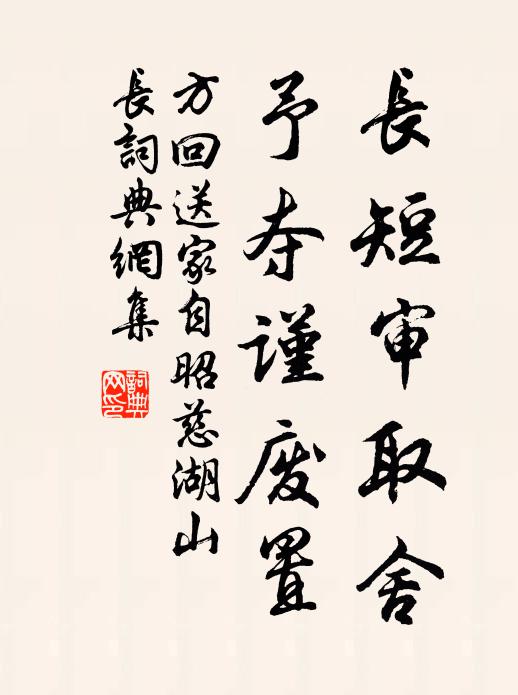 長短審取舍
予夺謹废置
方回送家自昭慈湖山
長詞典網集
詞典
网印